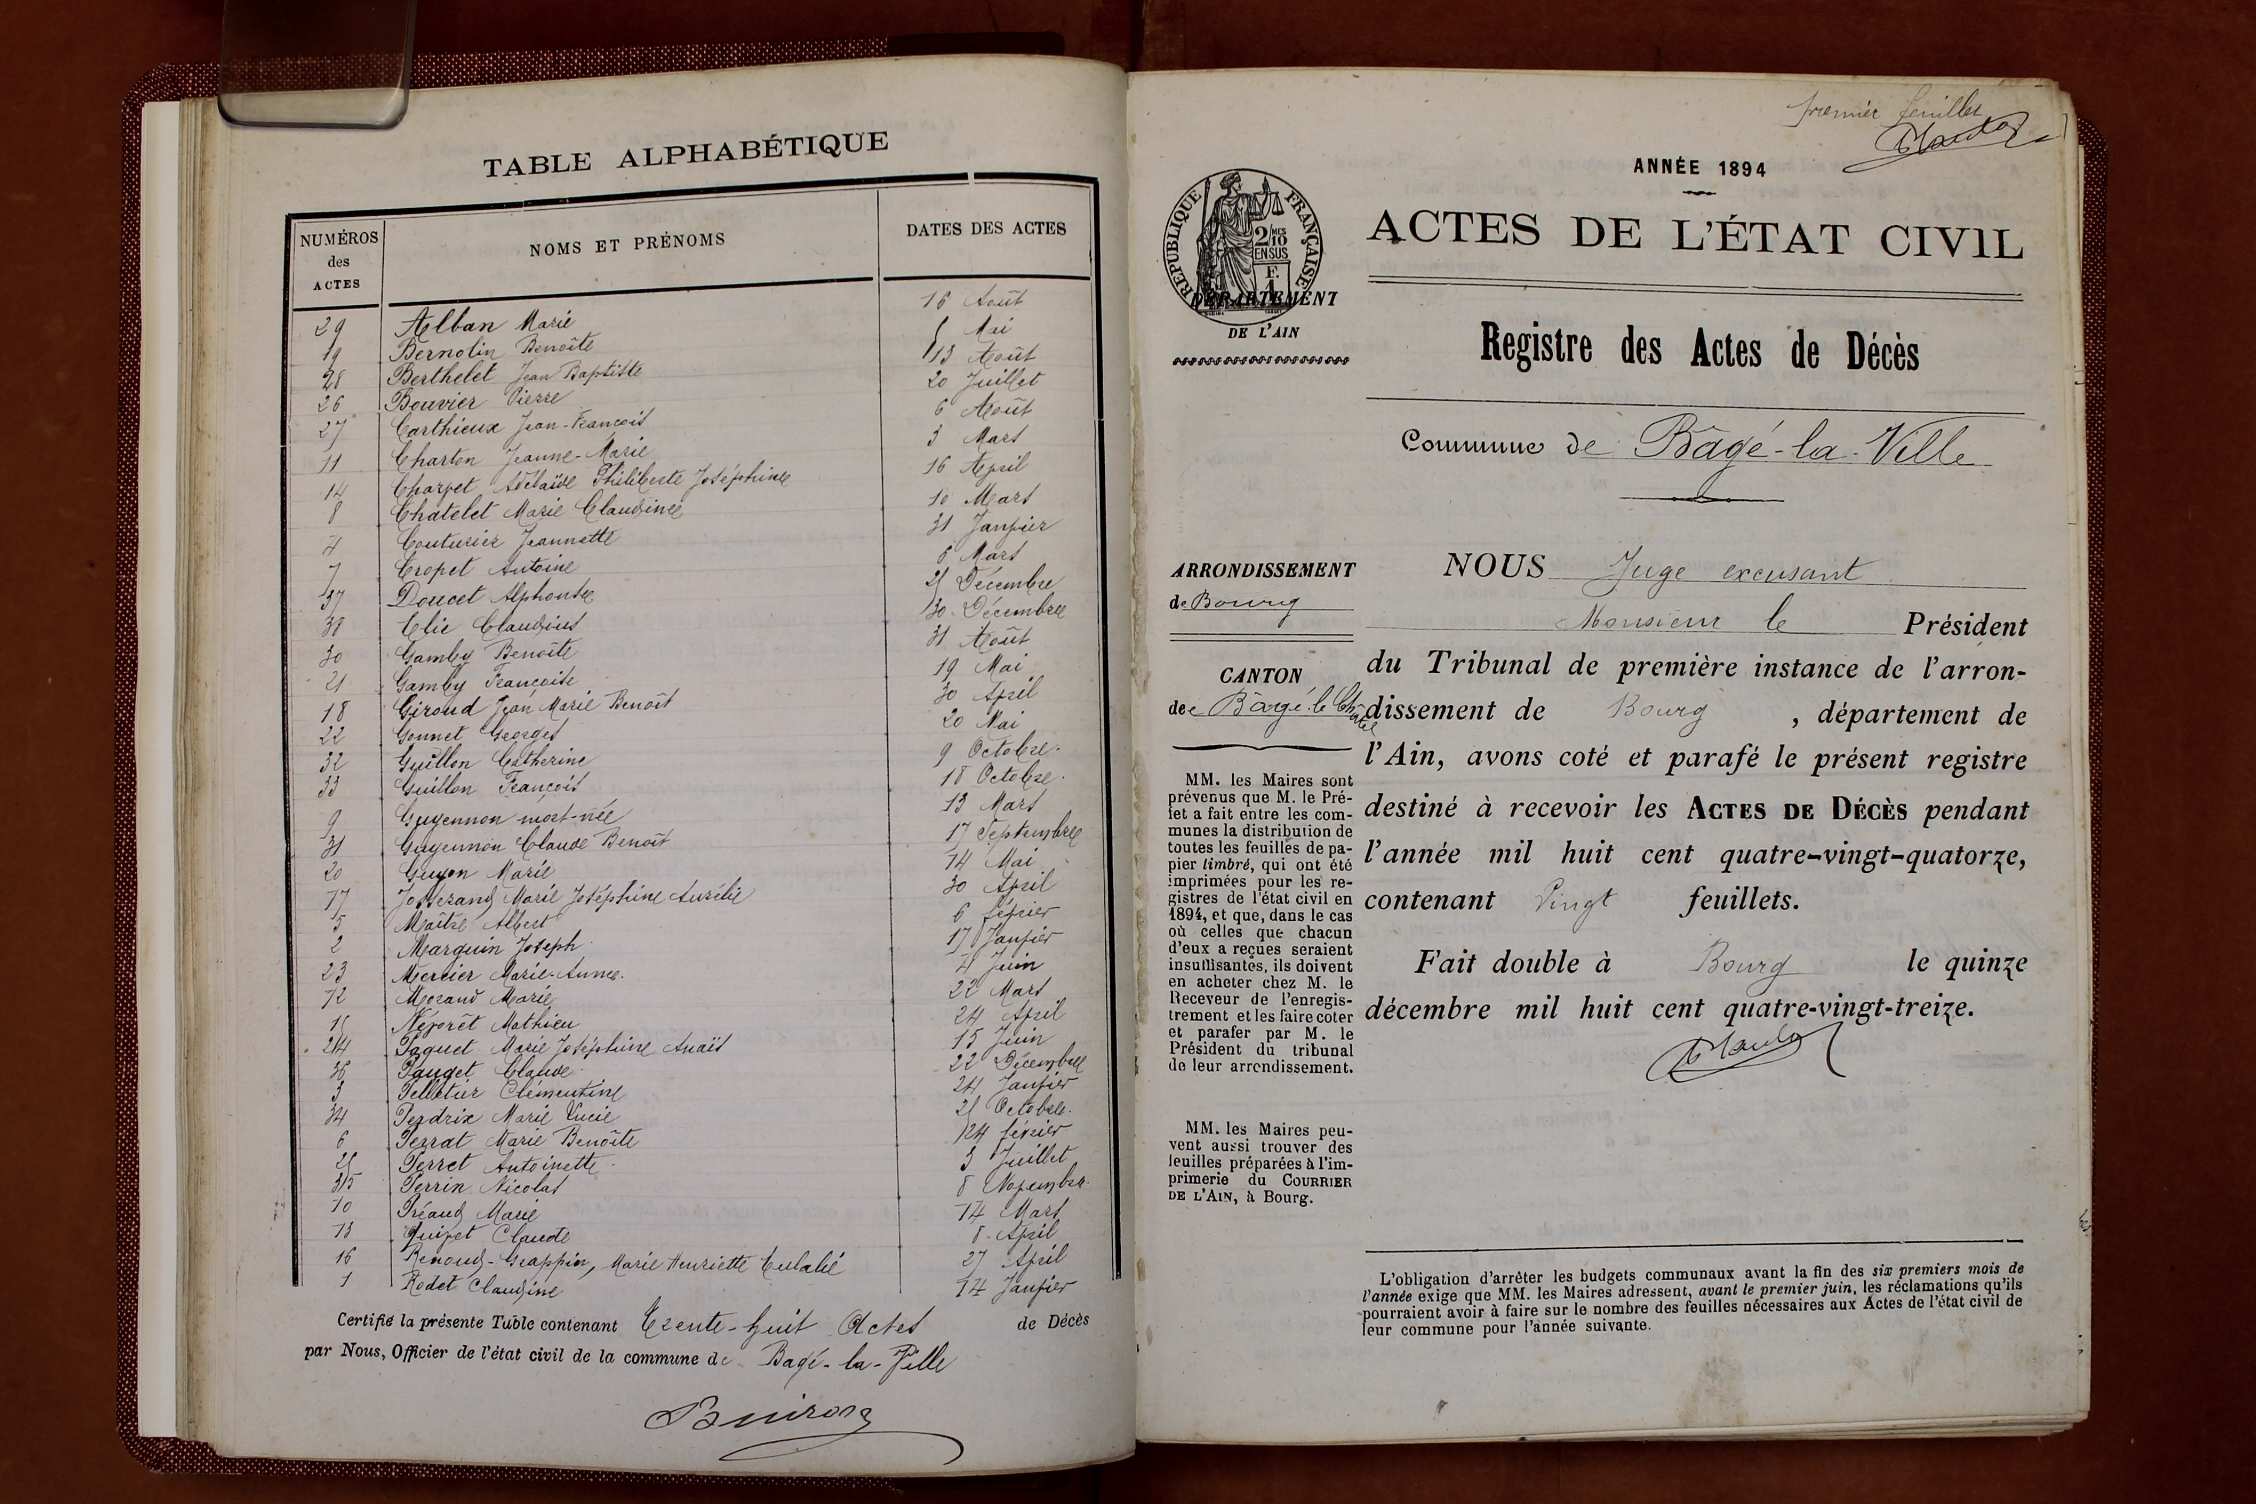 TABLE ALPHABÉTIQUE
NUMÉROS des ACTES NOMS ET PRÉNOMS DATES DES ACTES
29 Alban Marie 16 Août
19 Bernolin Benoîte 5 Mai
28 Berthelet Jean Baptiste 13 Août
26 Bouvier Pierre 20 Juillet
27 Carthieux Jean-François 6 Août
11 Charton Jeanne-Marie 3 Mars
14 Charpet Adélaïde Philiberte Joséphine 16 April
8 Chatelet Marie Claudine 10 Mars
4 Couturier Jeannette 31 Janvier
7 Cropet Antoine 6 Mars
37 Doucet Alphonse 25 Décembre
38 Elie Claudius 30 Décembre
30 Gamby Benoîte 31 Août
21 Gamby Françoise 19 Mai
18 Giroud Jean Marie Benoît 30 April
22 Gonnet Georges 20 Mai
32 Guillon Catherine 9 Octobre
33 Guillon François 18 Octobre
9 Guyennon mort-née 13 Mars
31 Guyennon Claude Benoît 17 Septembre
20 Guyon Marie 14 Mai
17 Josserand Marie Joséphine Aurélie 30 April
5 Maître Albert 6 février
2 Marguin Joseph 17 Janvier
23 Mercier Marie-Anne 4 Juin
12 Morand Marie 22 Mars
15 Névoret Mathieu 24 April
24 Paquet Marie Joséphine Anaïs 15 Juin
36 Pauget Claude 22 Décembre
3 Pelletier Clémentine 24 Janvier
34 Perdrix Marie Lucie 25 Octobre
6 Perrat Marie Benoîte 24 février
25 Perret Antoinette 3 Juillet
35 Perrin Nicolas 8 Novembre
10 Préaud Marie 14 Mars
13 Quivet Claude 8 April
16 Renoud-Grappin, Marie Henriette Eulalie 27 April
1 Rodet Claudine 14 Janvier
Certifié la présente Table contenant Trente-huit Actes de Décès
par Nous, Officier de l'état civil de la commune de Bagé-la-Ville
premier feuillet
ANNÉE 1894
RÉPUBLIQUE FRANÇAISE
2/10 MES
EN SUS
F.
1
ACTES DE L'ÉTAT CIVIL
DÉPARTEMENT
DE L'AIN
Registre des Actes de Décès
Commune de Bâgé-la-Ville
ARRONDISSEMENT
de Bourg
CANTON
de Bâgé-le-Châtel
MM. les Maires sont
prévenus que M. le Pré-
fet a fait entre les com-
munes la distribution de
toutes les feuilles de pa-
pier timbré, qui ont été
imprimées pour les re-
gistres de l'état civil en
1894, et que, dans le cas
où celles que chacun
d'eux a reçues seraient
insuffisantes, ils doivent
en acheter chez M. le
Receveur de l'enregis-
trement et les faire coter
et parafer par M. le
Président du tribunal
de leur arrondissement.
MM. les Maires peu-
vent aussi trouver des
feuilles préparées à l'im-
primerie du COURRIER
DE L'AIN, à Bourg.
NOUS Juge excusant
Monsieur le Président
du Tribunal de première instance de l'arron-
dissement de Bourg, département de
l'Ain, avons coté et parafé le présent registre
destiné à recevoir les ACTES DE DÉCÈS pendant
l'année mil huit cent quatre-vingt-quatorze,
contenant Vingt feuillets.
Fait double à Bourg le quinze
décembre mil huit cent quatre-vingt-treize.
L'obligation d'arrêter les budgets communaux avant la fin des six premiers mois de
l'année exige que MM. les Maires adressent, avant le premier juin, les réclamations qu'ils
pourraient avoir à faire sur le nombre des feuilles nécessaires aux Actes de l'état civil de
leur commune pour l'année suivante.